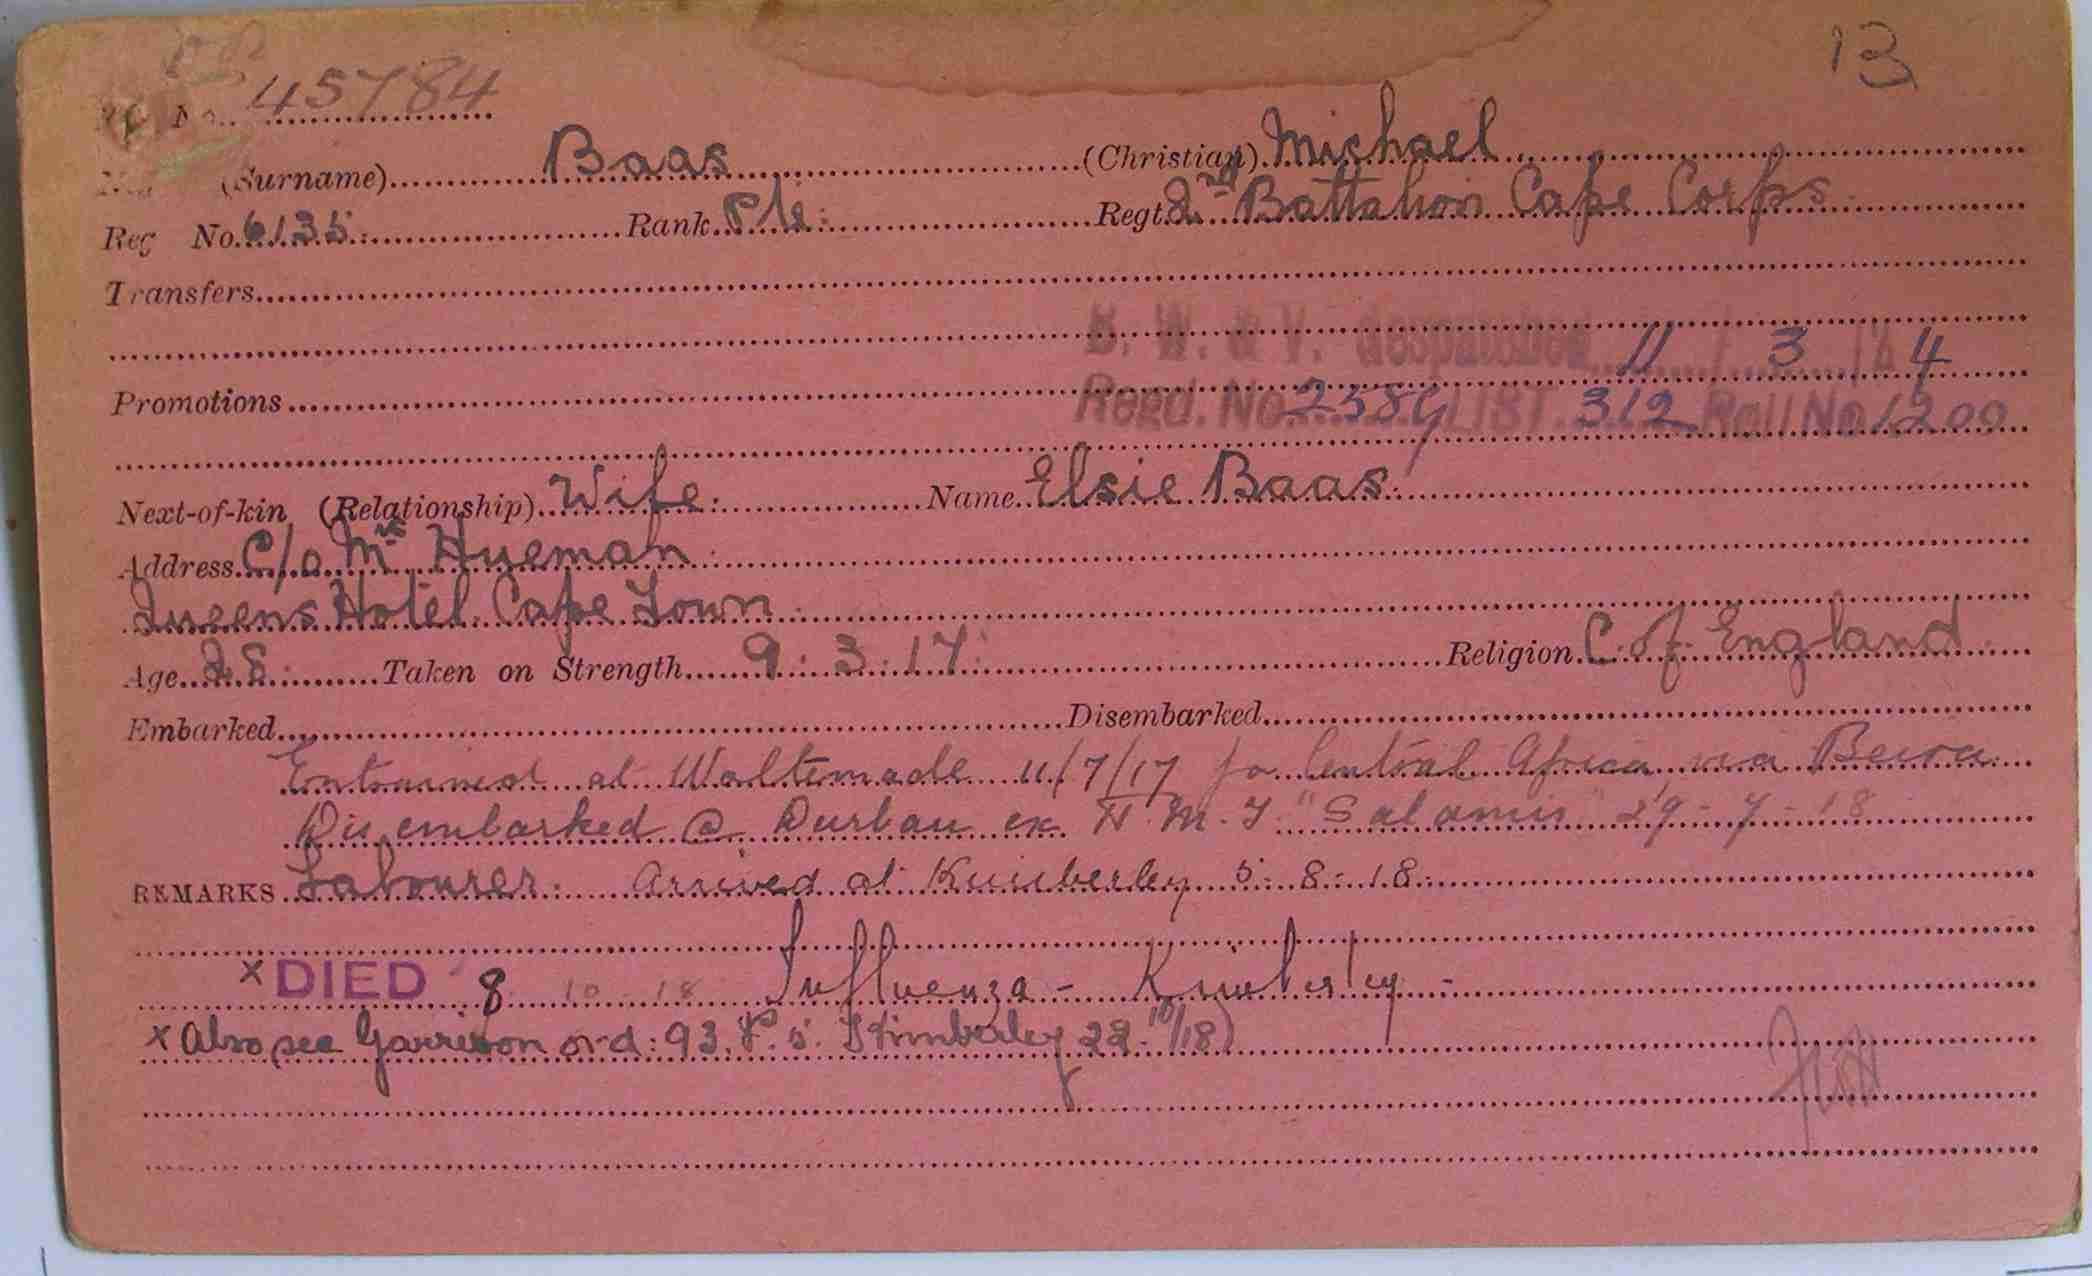 13
No. 45784
(Surname) Baas (Christian) Michael
Reg No. 6135. Rank Pte. Regt. 2nd Battalion Cape Corps
Transfers
B. W. & V. despatched 11 / 3 / 24
Promotions Regd. No. 2389 LIST 312 Roll No 1200
Next-of-kin (Relationship) Wife. Name Elsie Baas.
Address C/o Mrs Hueman.
Queens Hotel. Cape Town.
Age 28. Taken on Strength 9. 3. 17. Religion C. of England.
Embarked Disembarked
Entrained at Woltemade 11/7/17 for Central Africa via Beira.
Disembarked @ Durban ex H. M. T. "Salamis" 29-7-18
REMARKS Labourer. Arrived at Kimberley 5-8-18.
x DIED 8 10-18 Influenza - Kimberley -
x Also see Garrison ord: 93. P. 5. Kimberley 22.10/18)